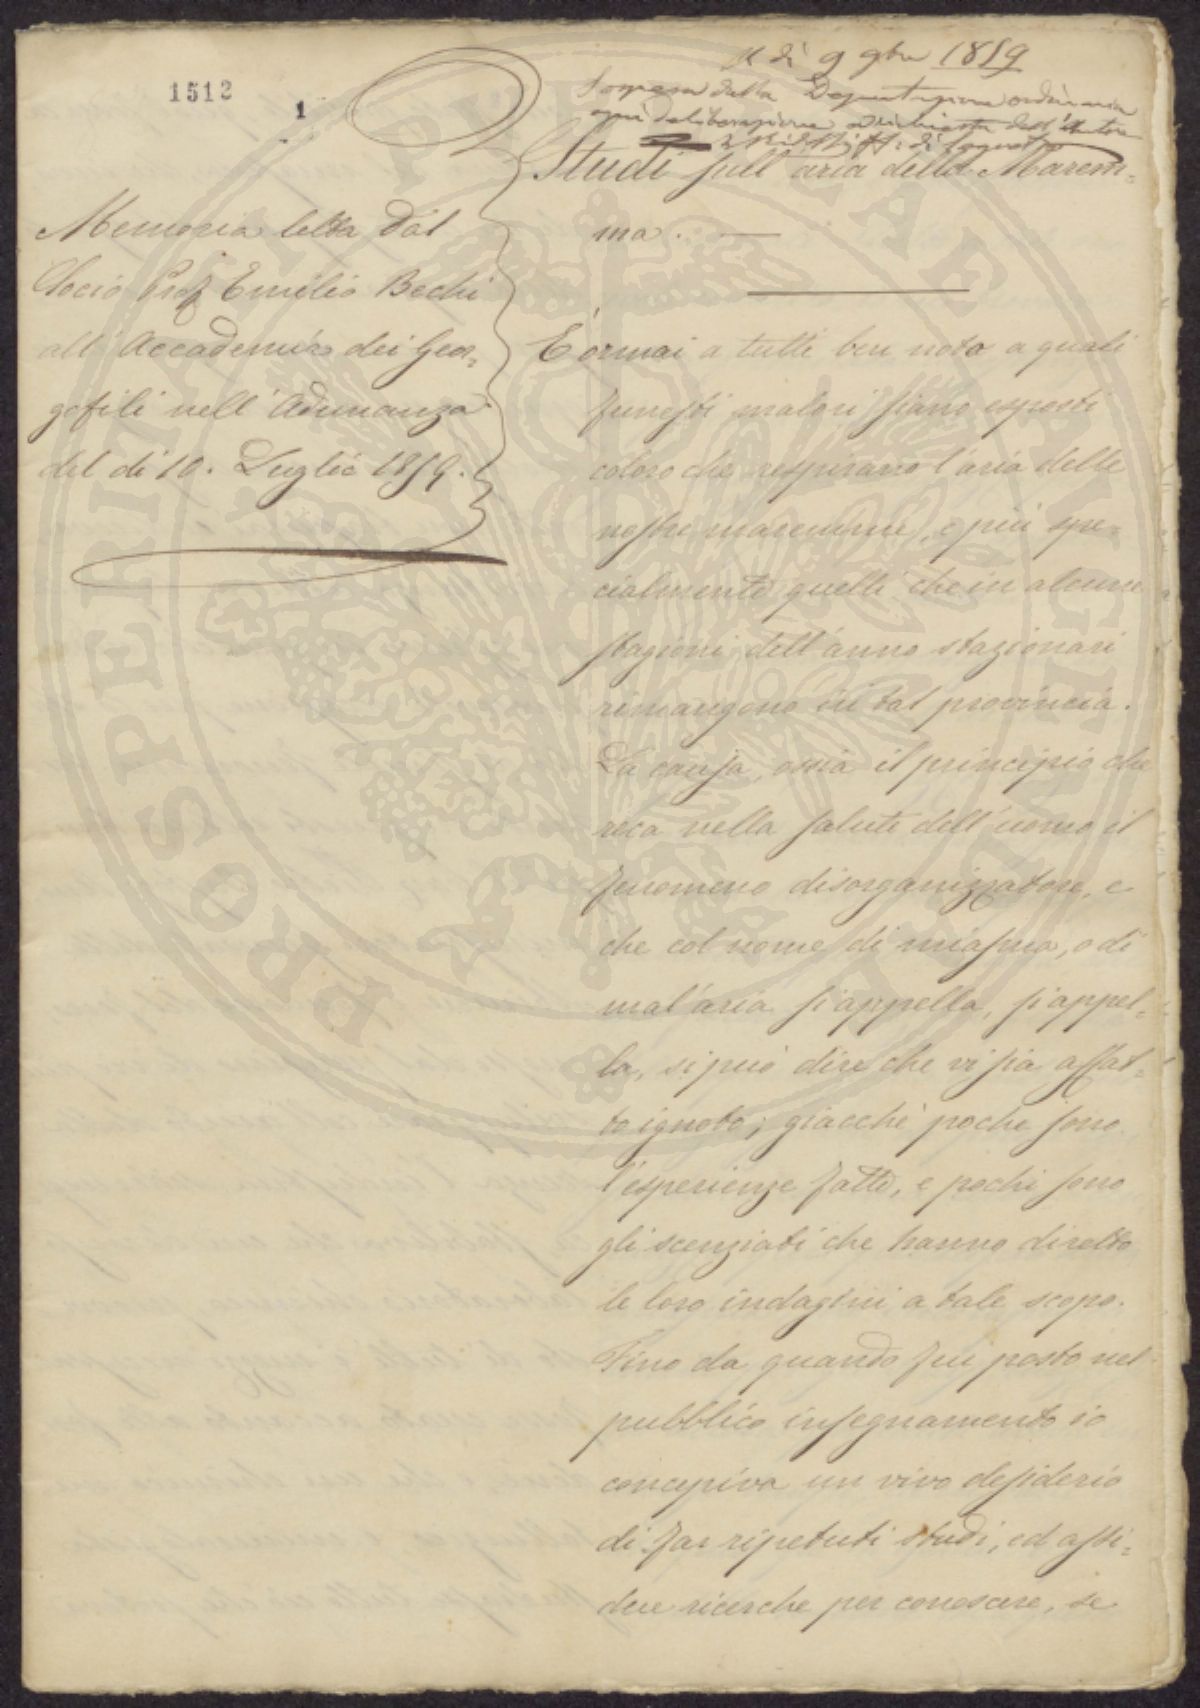 1512
1
A dì 9 9bre 1859
Sospesa dalla Deputazione ordinaria
ogni deliberazione a richiesta dell'Autore
Studi sull'aria della Marem-
ma. —
Memoria letta dal
Socio Prof Emilio Bechi
all'Accademia dei Geor-
gofili nell'Adunanza
del dì 10. Luglio 1859.
È ormai a tutti ben noto a quali
funesti malori siano esposti
coloro che respirano l'aria delle
nostre maremme, e più spe-
cialmente quelli che in alcune
stagioni dell'anno stazionari
rimangono in tal provincia.
La causa, ossia il principio che
reca nella salute dell'uomo il
fenomeno disorganizzatore, e
che col nome di miasma, o di
mal'aria si appella, si appel-
la, si può dire che vi sia affat-
to ignoto; giacchè poche sono
l'esperienze fatte, e pochi sono
gli scenziati che hanno diretto
le loro indagini a tale scopo.
Fino da quando fui posto nel
pubblico insegnamento io
concepiva un vivo desiderio
di far ripetuti studi, ed assi-
due ricerche per conoscere, se
PROSPERITATI PUBLICAE AUGENDAE